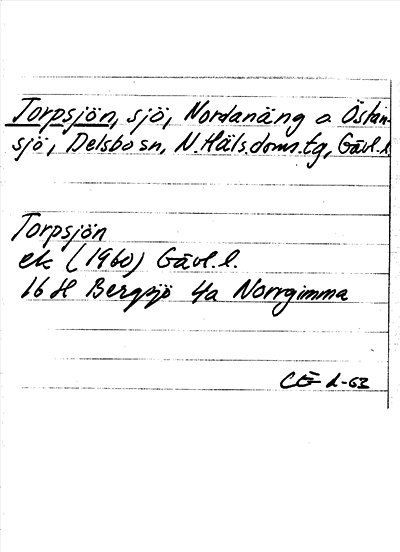 Torpsjön, sjö, Nordanäng o Östan-
sjö, Delsbo sn, N. Häls. doms. tg, Gävl. l.
Torpsjön
ek (1960) Gävl. l.
16 H Bergsjö 4a Norrgimma
CE